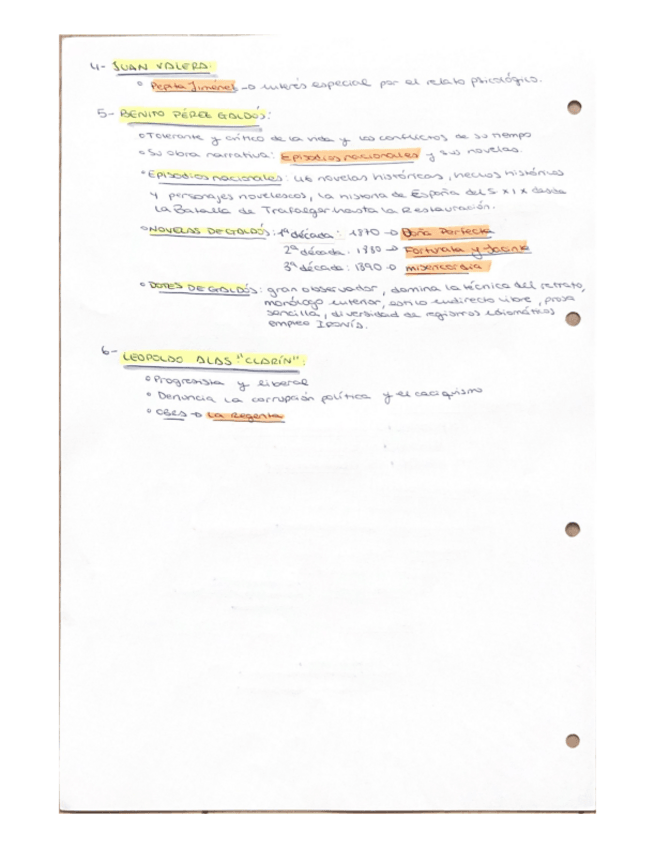 4- JUAN VALERA:
° Pepita Jiménez → interés especial por el relato psicológico.
5- BENITO PÉREZ GALDÓS:
° Tolerante y crítico de la vida y los conflictos de su tiempo
° Su obra narrativa: Episodios nacionales y sus novelas.
° EPISODIOS NACIONALES: 46 novelas históricas, hechos históricos
y personajes novelescos, la historia de España del S XIX desde
la Batalla de Trafalgar hasta la Restauración.
° NOVELAS DE GALDÓS: 1ª década: 1870 → Doña Perfecta
2ª década: 1880 → Fortunata y Jacinta
3ª década: 1890 → misericordia
° DOTES DE GALDÓS: gran observador, domina la técnica del retrato,
monólogo interior, estilo indirecto libre, prosa
sencilla, diversidad de registros idiomáticos
empleo IRONÍA.
6- LEOPOLDO ALAS "CLARÍN":
° Progresista y liberal
° Denuncia la corrupción política y el caciquismo
° OBRAS → La Regenta